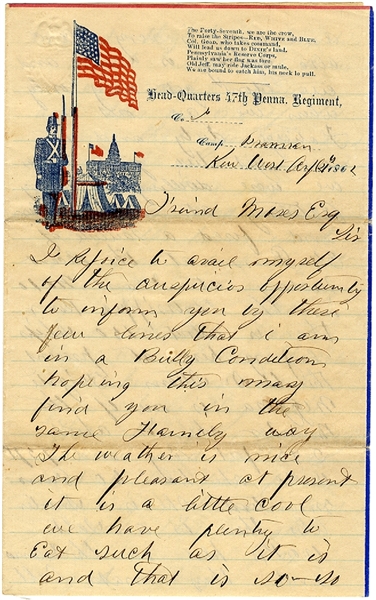 The Forty-Seventh, we are the crew,
To raise the Stripes—RED, WHITE and BLUE.
Col. GOOD, who takes command,
Will lead us down to DIXIE's land.
Pennsylvania's Reserve Corps,
Plainly saw her flag was tore.
Old Jeff. may ride Jackass or mule,
We are bound to catch him, his neck to pull.
Head-Quarters 47th Penna. Regiment,
Co.
Camp Brannan
Key West 1862
Friend Moses Esq
Sir
I rejoice to avail myself
of the auspicius opportunity
to inform you by these
few lines that i am
in a Bully Condition
hopeing this may
find you in the
same Homely way
The weather is nice
and pleasant at present
it is a little cool
we have plenty to
Eat such as it is
and that is so-so